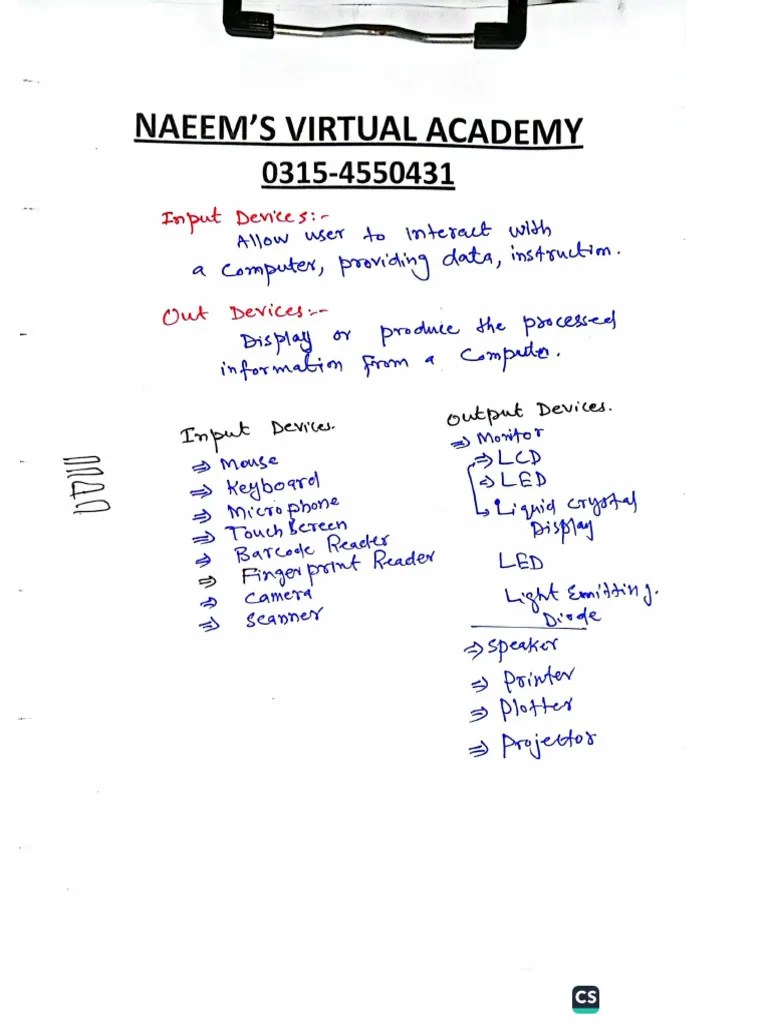 NAEEM'S VIRTUAL ACADEMY
0315-4550431
Input Devices:-
Allow user to interact with
a computer, providing data, instruction.
Out Devices:--
Display or produce the processed
information from a Computer.
Input Devices.
⇒ Mouse
⇒ Keyboard
⇒ Microphone
⇒ Touch Screen
⇒ Barcode Reader
⇒ Fingerprint Reader
⇒ Camera
⇒ Scanner
Output Devices.
⇒ Monitor
⇒ LCD
⇒ LED
↳ Liquid Crystal
Display
LED
Light Emitting.
Diode
⇒ Speaker
⇒ Printer
⇒ Plotter
⇒ Projector
CS